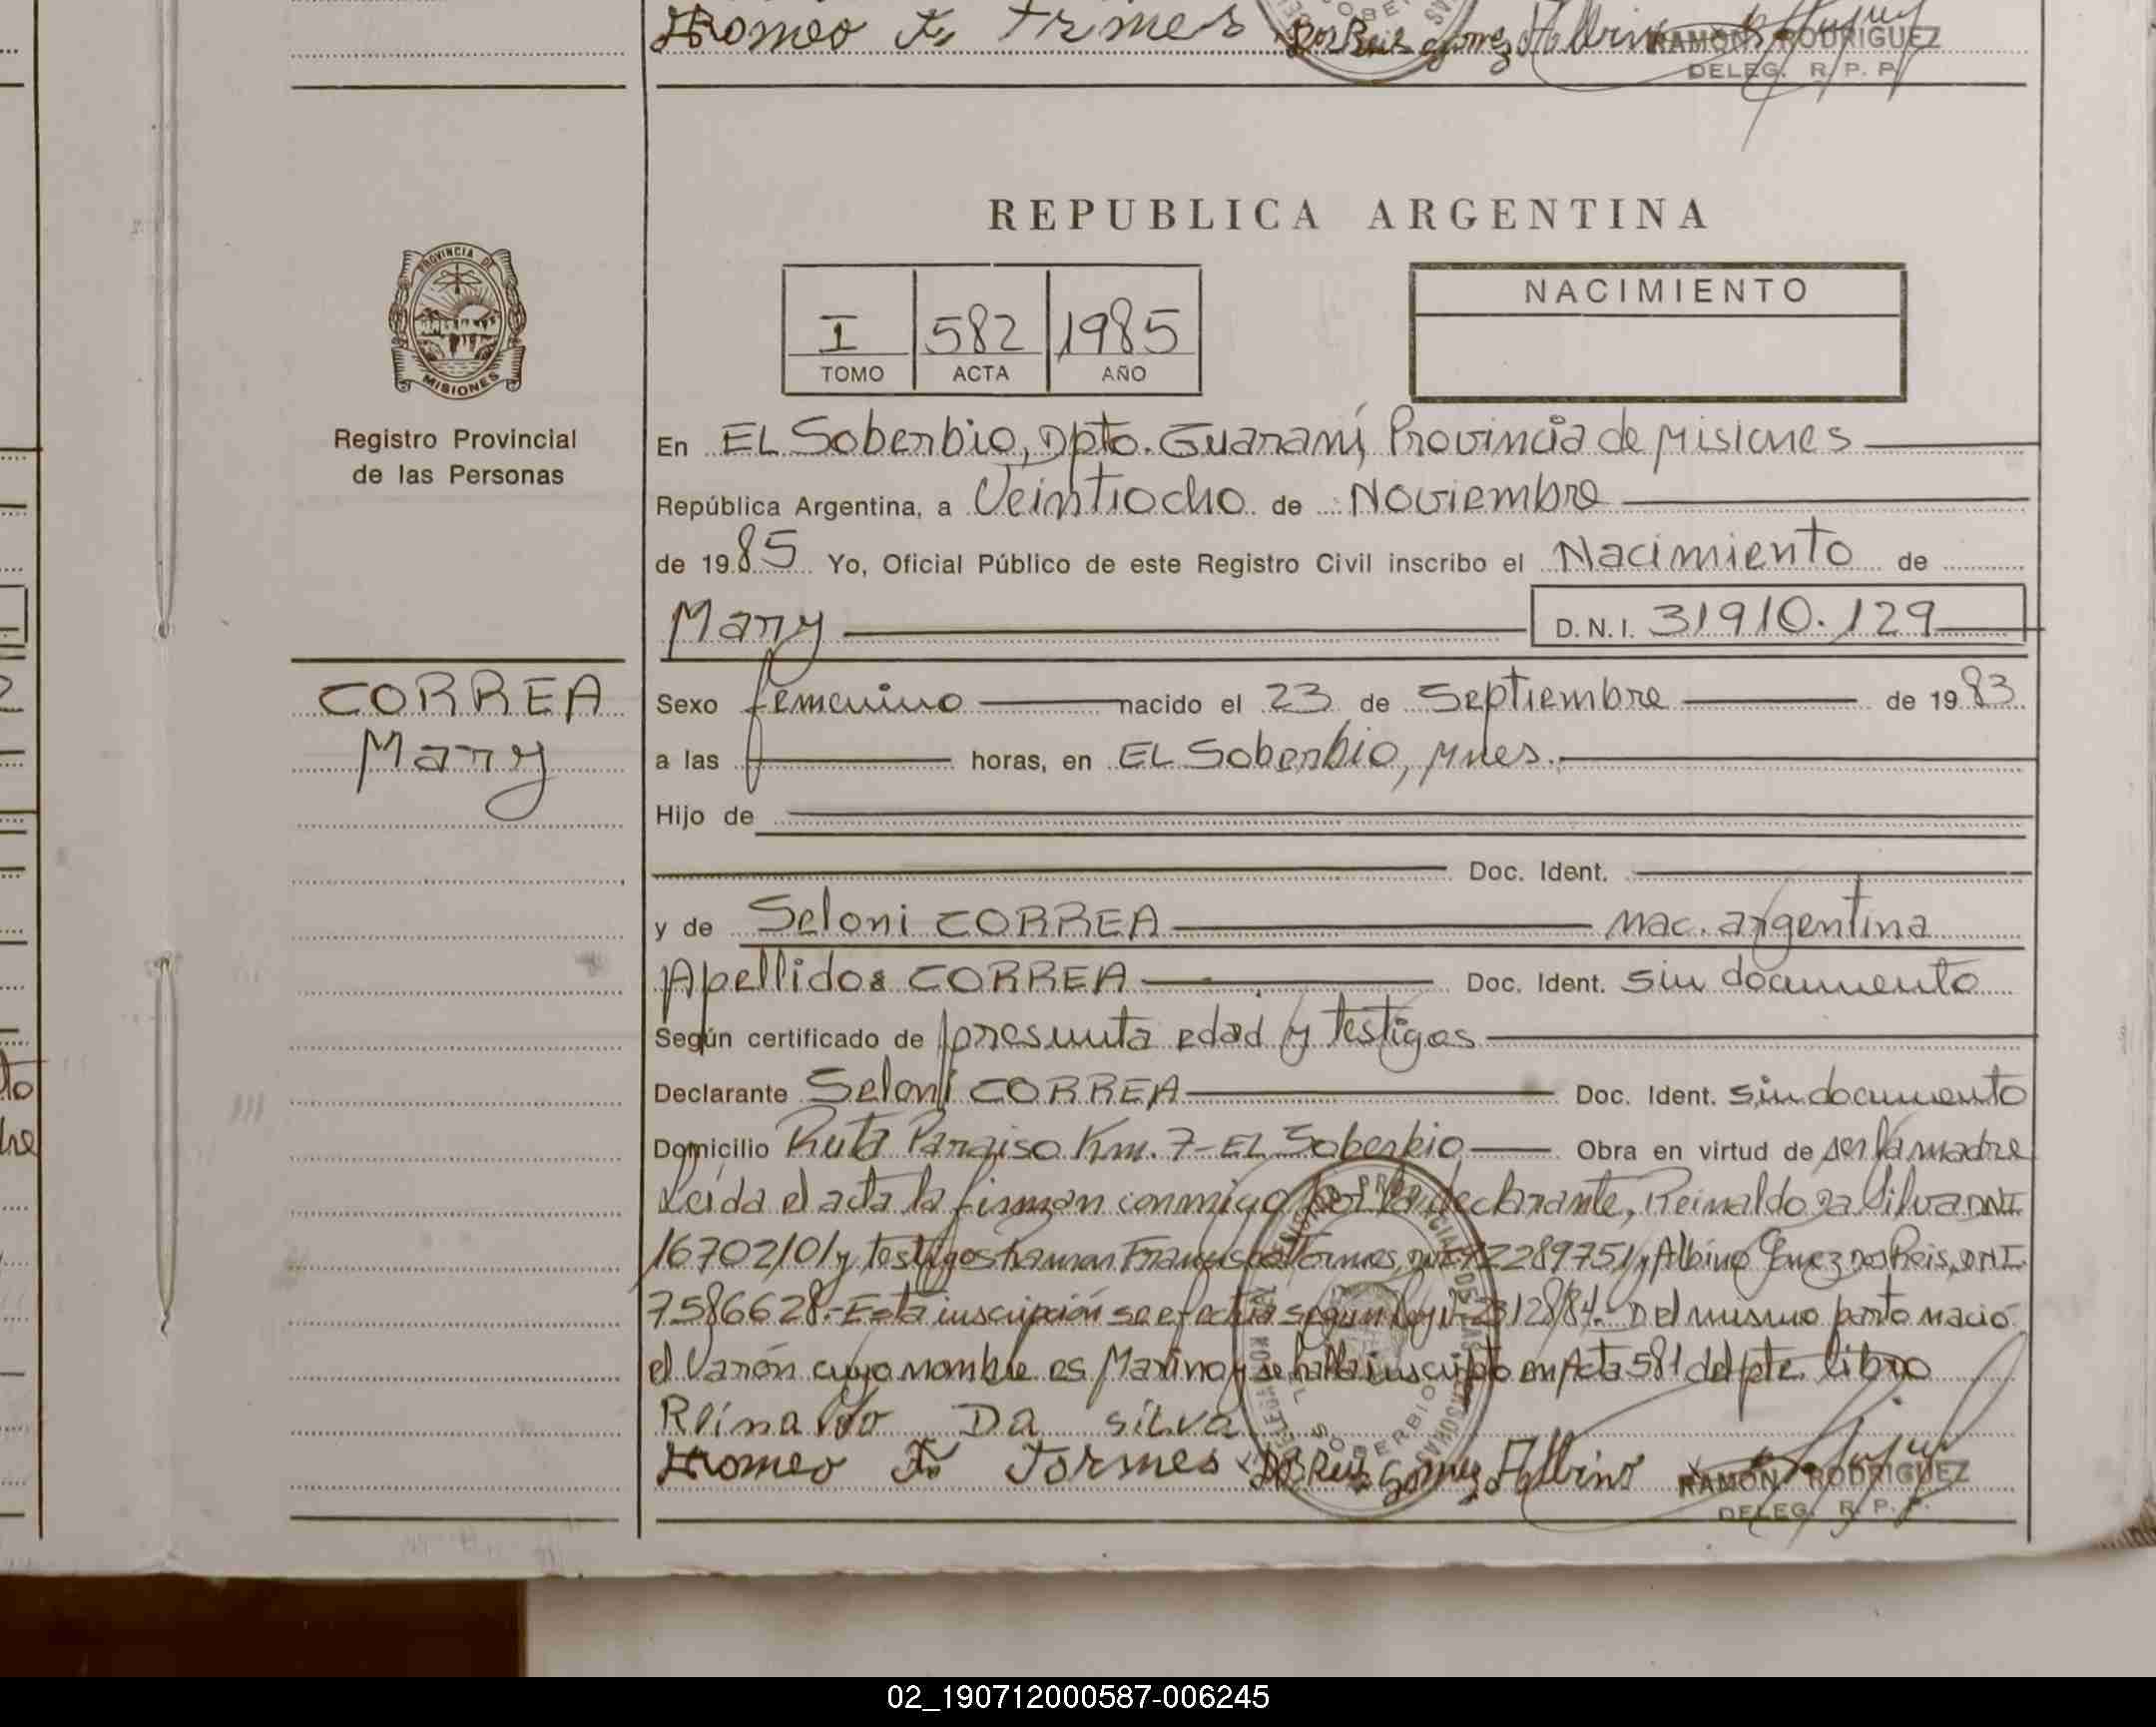 Romeo Fr. Tormes Dos Reis Gomez Albino RAMON RODRIGUEZ
DELEG. R. P. P.
REPUBLICA ARGENTINA
PROVINCIA DE
MISIONES
Registro Provincial
de las Personas
I 582 1985
TOMO ACTA AÑO
NACIMIENTO
En EL Soberbio, Dpto. Guaraní, Provincia de Misiones
República Argentina, a Veintiocho de Noviembre
de 1985 Yo, Oficial Público de este Registro Civil inscribo el Nacimiento de
Mary D.N.I. 31910.129
CORREA
Mary
Sexo femenino nacido el 23 de Septiembre de 1983
a las horas, en EL Soberbio, Mnes.
Hijo de
Doc. Ident.
y de Seloni CORREA nac. argentina
Apellidos CORREA Doc. Ident. sin documento
Según certificado de presunta edad y testigos
Declarante Seloni CORREA Doc. Ident. sin documento
Domicilio Ruta Paraiso Km. 7 - EL Soberbio Obra en virtud de ser la madre
Leída el acta la firman conmigo por la declarante, Reinaldo Da Silva DNI
16702101 y testigos Tormes, 92289751 y Albino Gomez Dos Reis, DNI
7586628.- Esta inscripción se efectúa según 23128/84.- Del mismo parto nació
el Varón cuyo nombre es Marino y se halla inscripto en Acta 581 del pte. libro
Reinaldo Da Silva
Romeo Fr. Tormes Dos Reis Gomez Albino RAMON RODRIGUEZ
DELEG. R. P. P.
02_190712000587-006245